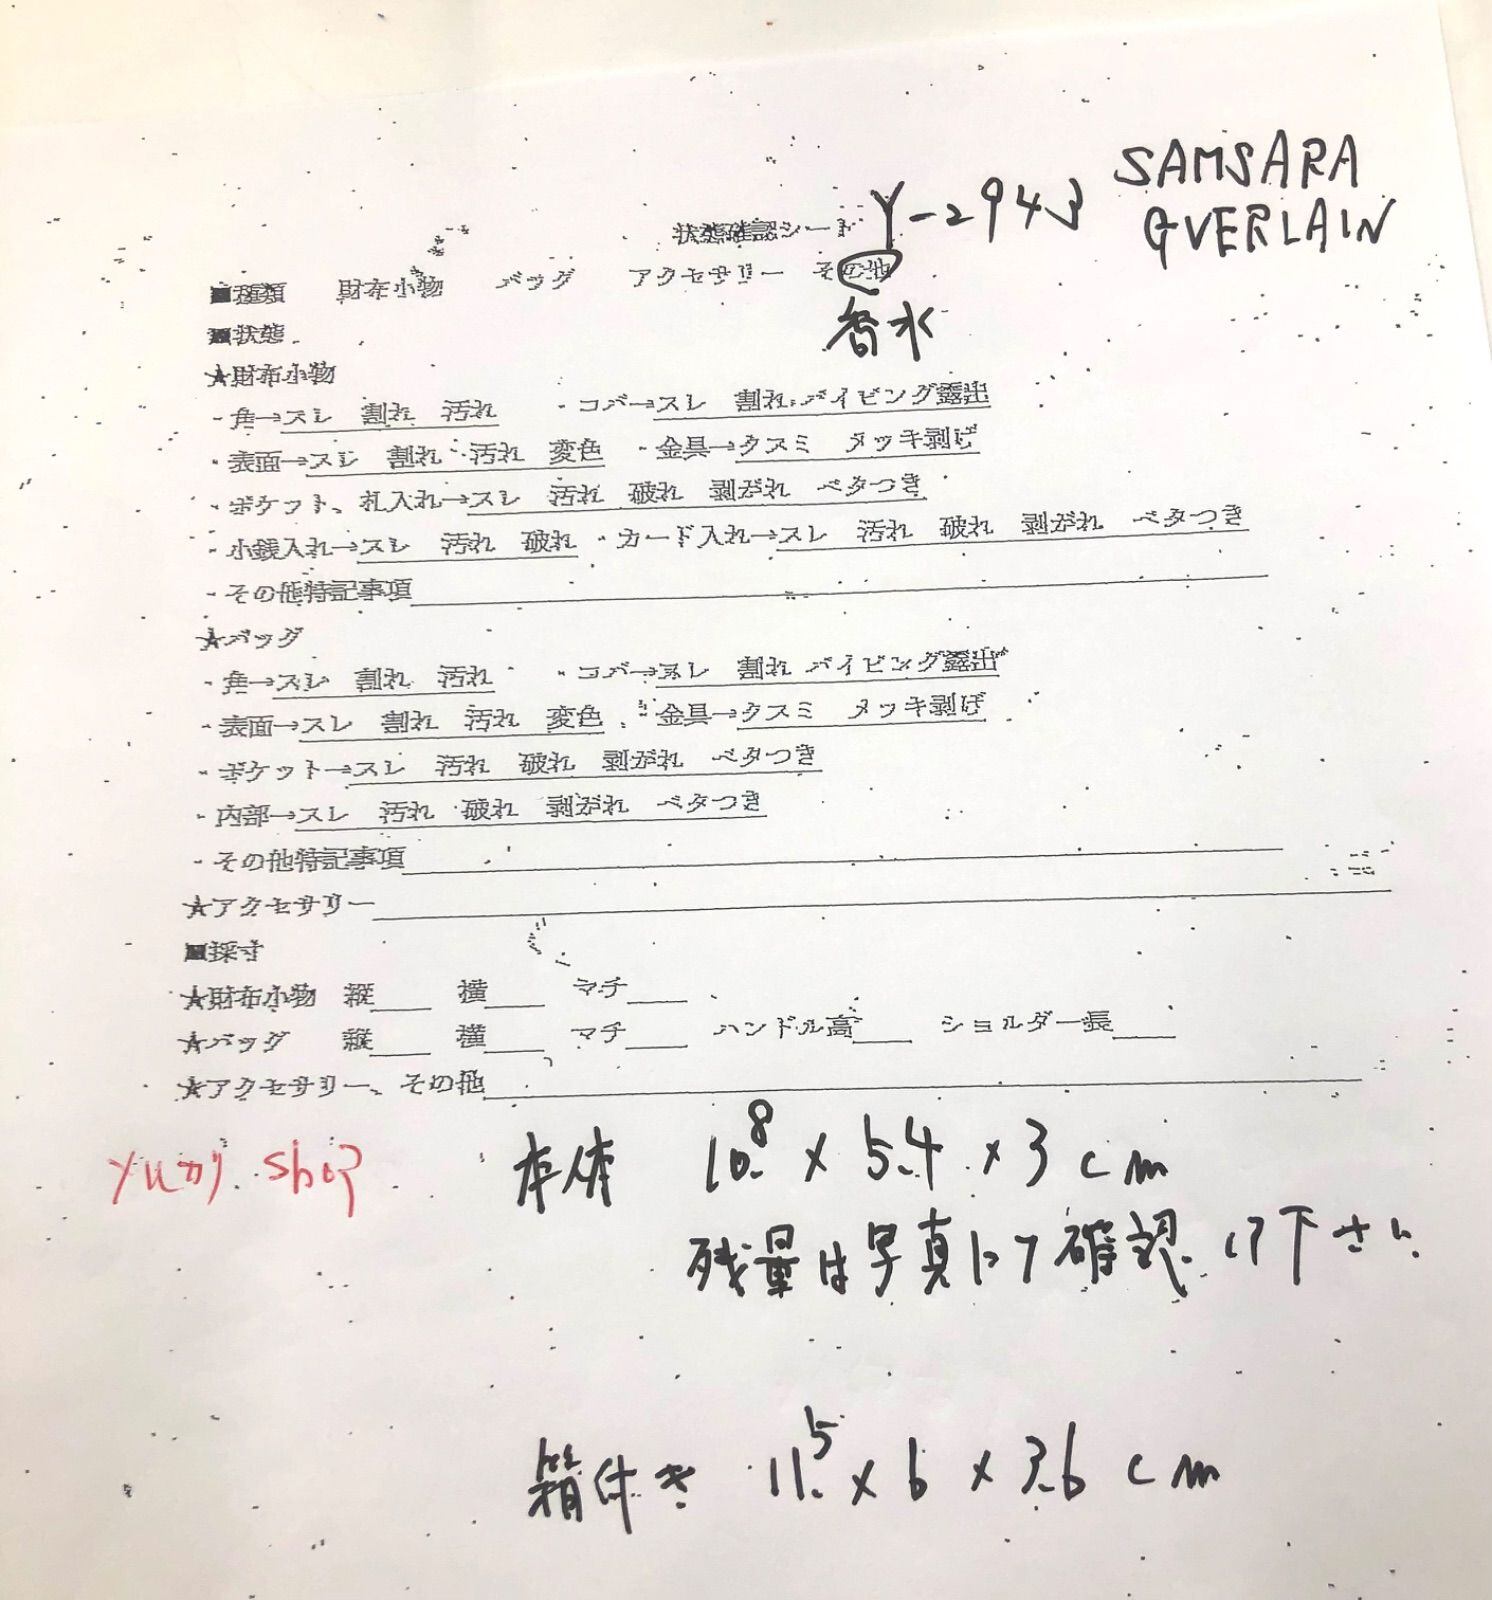 SAMSARA
GVERLAIN
状態確認シート Y-2943
■種類 財布小物 バッグ アクセサリー その他
香水
■状態
★財布小物
・角→スレ 割れ 汚れ ・コバ→スレ 割れ パイピング露出
・表面→スレ 割れ 汚れ 変色 ・金具→クスミ メッキ剥げ
・ポケット、札入れ→スレ 汚れ 破れ 剥がれ ベタつき
・小銭入れ→スレ 汚れ 破れ ・カード入れ→スレ 汚れ 破れ 剥がれ ベタつき
・その他特記事項
★バッグ
・角→スレ 割れ 汚れ ・コバ→スレ 割れ パイピング露出
・表面→スレ 割れ 汚れ 変色 ・金具→クスミ メッキ剥げ
・ポケット→スレ 汚れ 破れ 剥がれ ベタつき
・内部→スレ 汚れ 破れ 剥がれ ベタつき
・その他特記事項
★アクセサリー
■採寸
★財布小物 縦 横 マチ
★バッグ 縦 横 マチ ハンドル高 ショルダー長
★アクセサリー、その他
shop 本体 10.8 x 5.4 x 3 cm
残量は写真にて確認して下さい
箱付き 11.5 x 6 x 3.6 cm